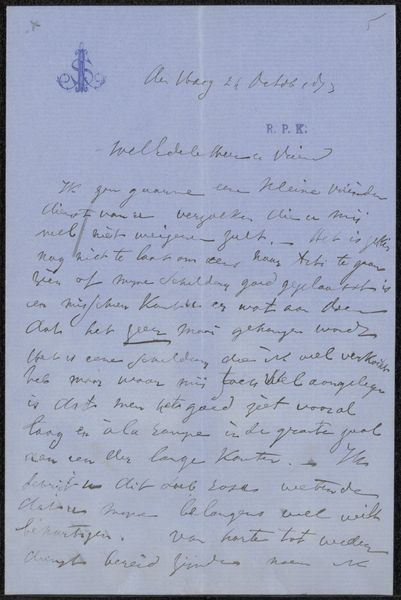 den Haag 26 Octob 1873
R. P. K.
WelEdele Heer en Vriend
Ik zou gaarne een kleine vrienden
dienst van u verzoeken die u mij
wel niet weigeren zult. - Het is
nog niet te laat om eens naar te gaan
zien of myne schildery goed geplaatst is
en misschien kan u er wat aan doen
dat het geen mooi gehangen wordt
Het is eene schildery die ik wel
het maar waar mij toch veel aangelegen
is dat men het goed ziet vooral
laag en à la rampe in de groote zaal
aan een der lange kanten. - Ik
schrijf u dit wetende
dat u myne belangen wel wilt
behartigen. van harte tot weder
dienst bereid zijnde noem ik